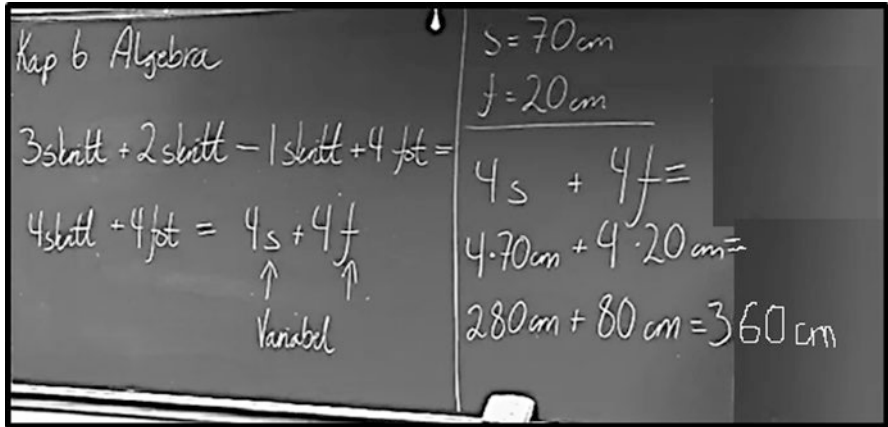 Kap 6 Algebra
3 skritt + 2 skritt - 1 skritt + 4 fot =
4 skritt + 4 fot = 4s + 4f
↑ ↑
Variabel
s = 70 cm
f = 20 cm
4s + 4f =
4·70 cm + 4·20 cm =
280 cm + 80 cm = 360 cm